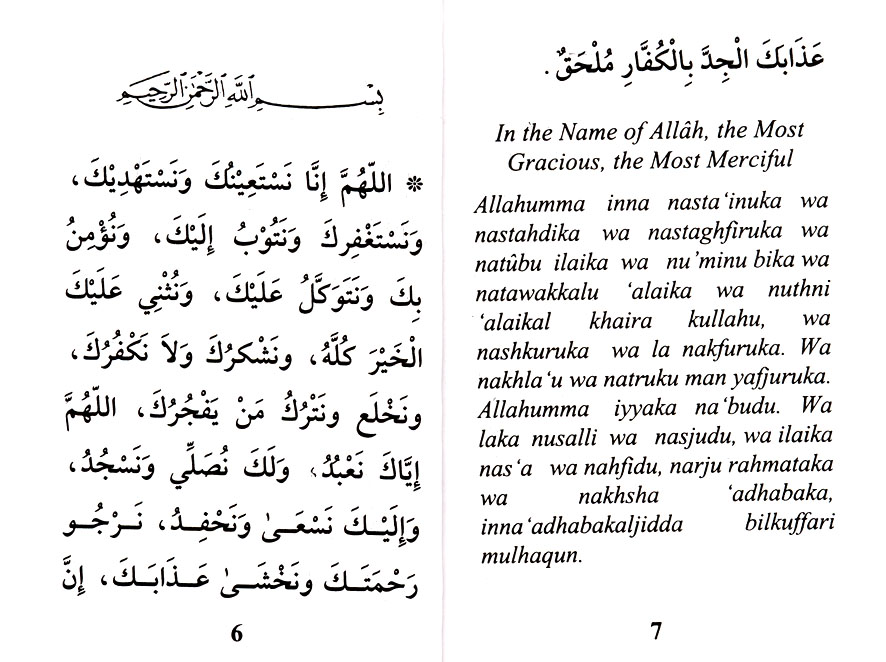 بِسْمِ اللَّهِ الرَّحْمَٰنِ الرَّحِيمِ
* اللّهُمَّ إِنَّا نَسْتَعِيْنُكَ وَنَسْتَهْدِيْكَ،
وَنَسْتَغْفِركَ وَنَتُوْبُ إِلَيْكَ، وَنُؤْمِنُ
بِكَ وَنَتَوَكَّلُ عَلَيْكَ، وَنُثْنِي عَلَيْكَ
الْخَيْرَ كُلَّهُ، ونَشْكرُكَ وَلاَ نَكْفُرُكَ،
ونَخْلَع ونَتْرُكُ مَنْ يَفْجُرُكَ، اللّهُمَّ
إِيَّاكَ نَعْبُدُ، وَلَكَ نُصَلِّي وَنَسْجُدُ،
وَإِلَيْكَ نَسْعَىٰ وَنَحْفِدُ، نَرْجُو
رَحْمَتَكَ ونَخْشَىٰ عَذَابَكَ، إِنَّ
6
عَذَابكَ الْجِدَّ بِالْكُفَّارِ مُلْحَقٌ.
In the Name of Allâh, the Most
Gracious, the Most Merciful
Allahumma inna nasta‘inuka wa
nastahdika wa nastaghfiruka wa
natûbu ilaika wa nu’minu bika wa
natawakkalu ‘alaika wa nuthni
‘alaikal khaira kullahu, wa
nashkuruka wa la nakfuruka. Wa
nakhla‘u wa natruku man yafjuruka.
Allahumma iyyaka na‘budu. Wa
laka nusalli wa nasjudu, wa ilaika
nas‘a wa nahfidu, narju rahmataka
wa nakhsha ‘adhabaka,
inna‘adhabakaljidda bilkuffari
mulhaqun.
7